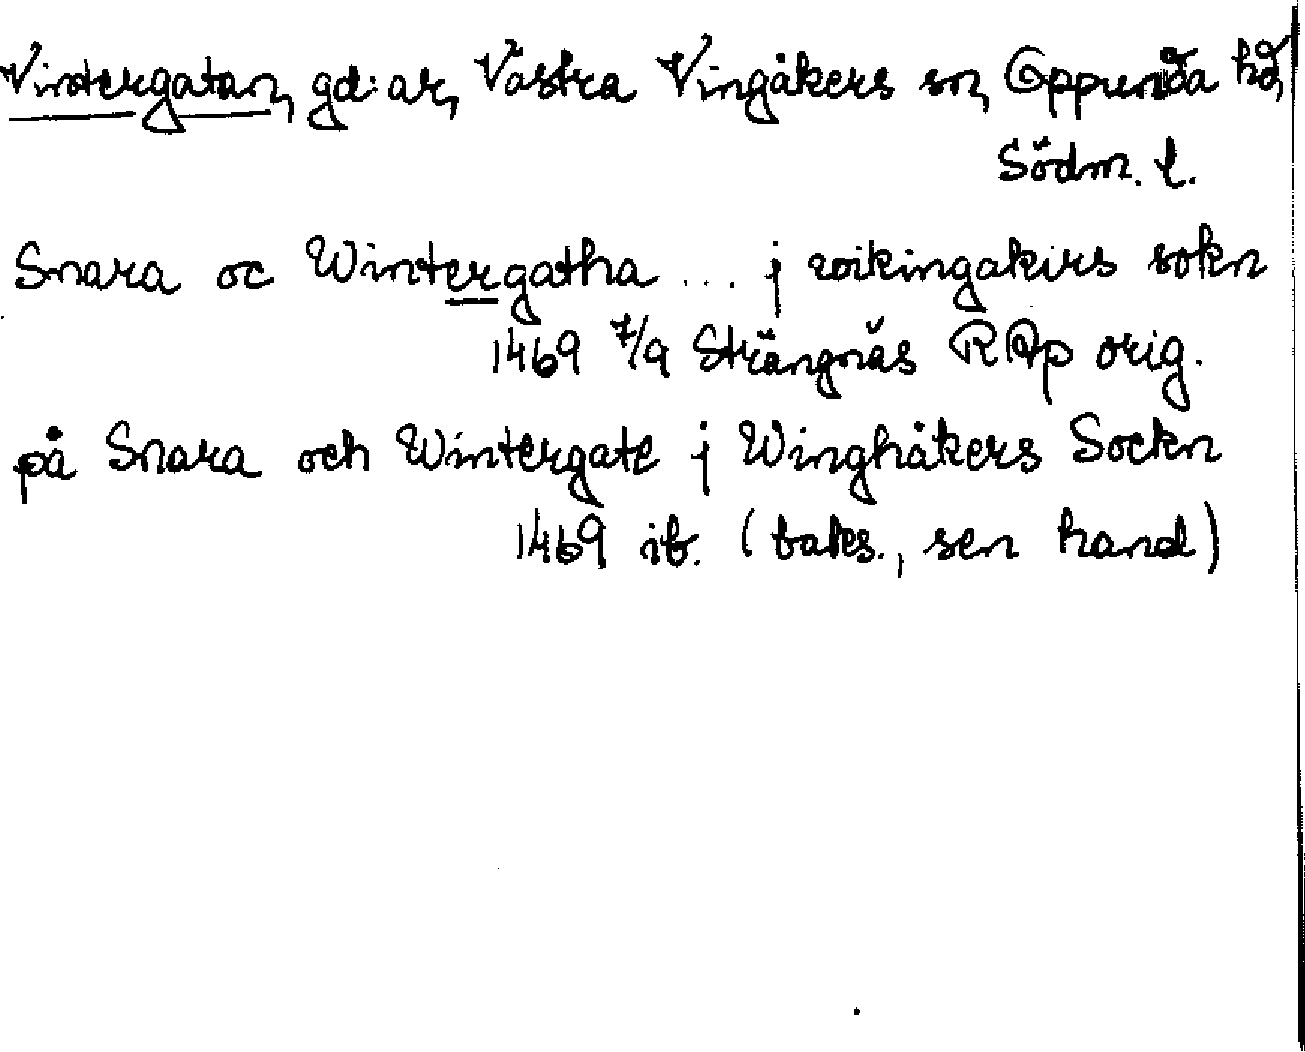 Vintergatan, gd:ar, Västra Vingåkers sn, Oppunda hd,
Södm. l.
Snara oc Wintergatha ... j wikingakirs sokn
1469 7/9 Strängnäs RAp orig.
på Snara och Wintergate j Winghåkers Sockn
1469 ib. (baks., sen hand)